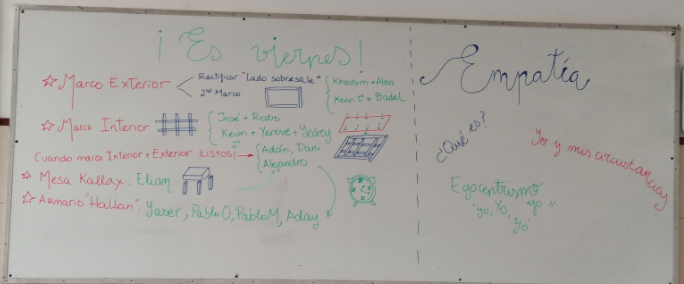 ¡Es viernes!
☆ Marco Exterior
Rectificar "lado sobresale"
2º Marco
Khassim + Alan
Kevin 1º + Badel
☆ Marco Interior
José + Rodri
Kevin 2º + Yerove + Yedey
Cuando marco Interior + Exterior ¡LISTOS! →
Adán, Dani
Alejandro
☆ Mesa Kallax: Elian
☆ Armario "Hallan": Yaser, Pablo O, Pablo M, Aday
Empatía
¿Qué es?
Yo y mis circustancias
Egocentrismo
"yo, yo, yo
yo"